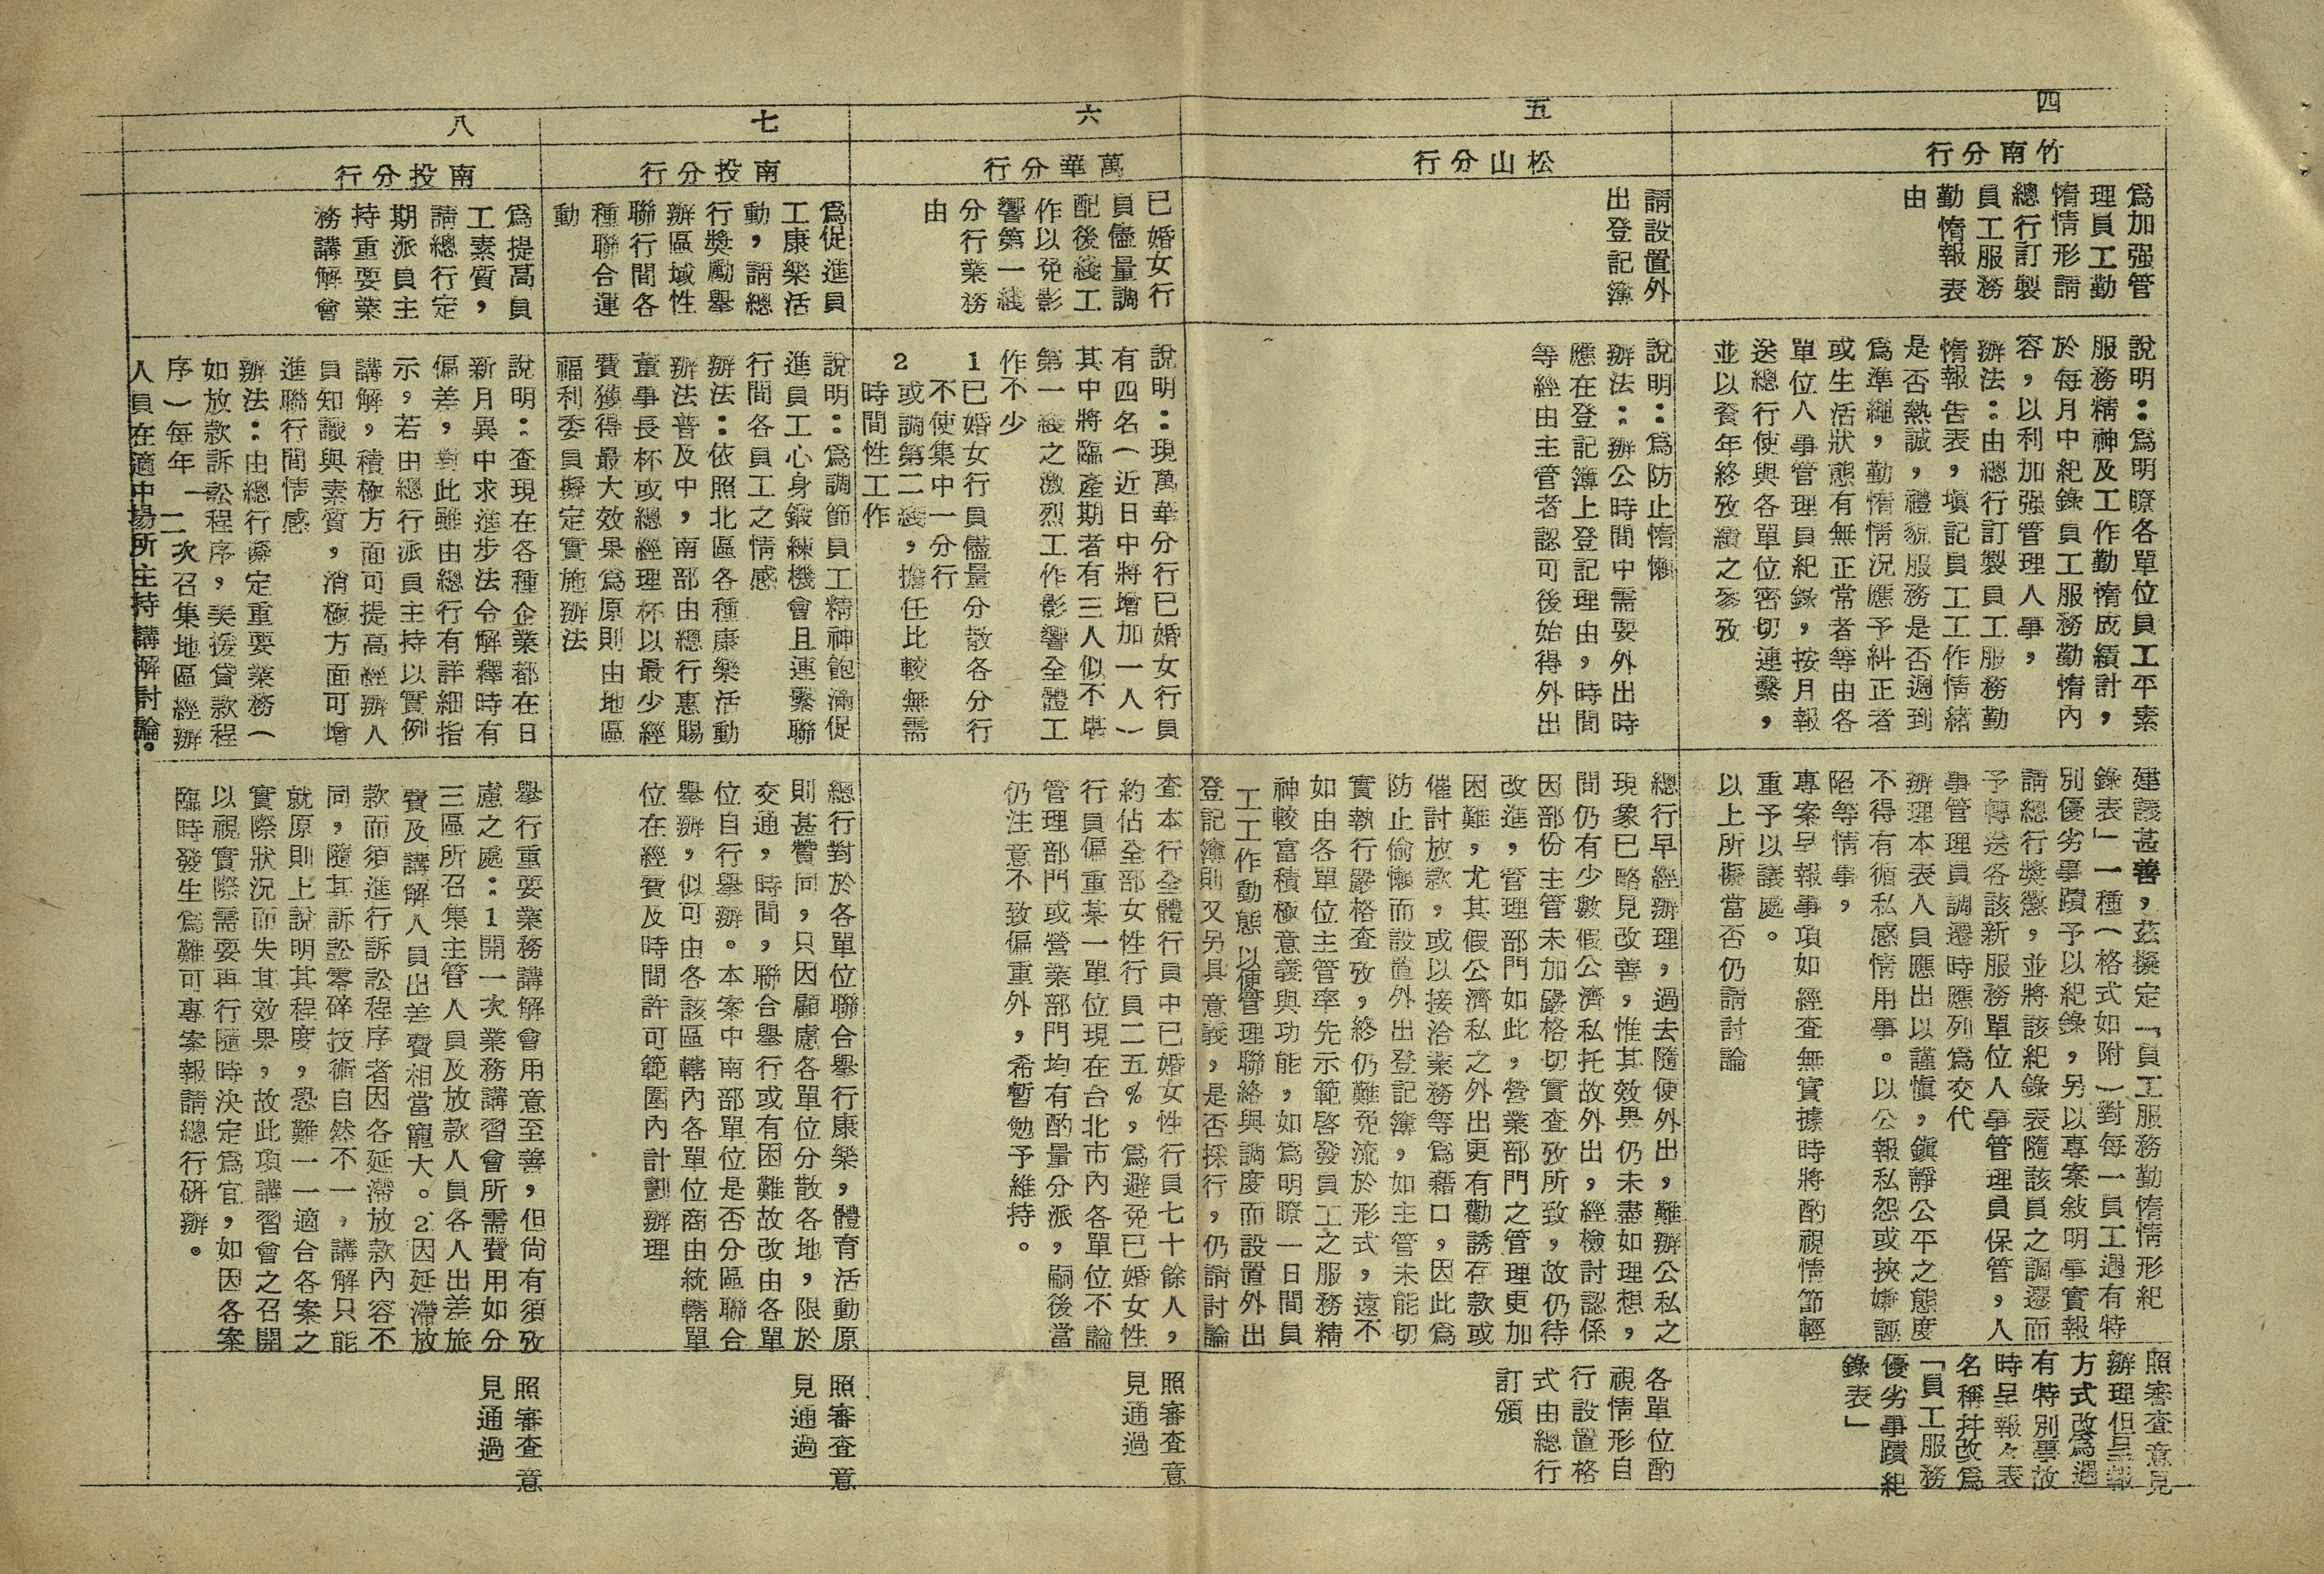 四
竹南分行
為加强管
理員工勤
惰情形請
總行訂製
員工服務
勤惰報表
由
說明：為明瞭各單位員工平素
服務精神及工作勤惰成績計，
於每月中紀錄員工服務勤惰內
容，以利加强管理人事，
辦法：由總行訂製員工服務勤
惰報告表，填記員工工作情緒
是否熱誠，禮貌服務是否週到
為準繩，勤惰情況應予糾正者
或生活狀態有無正常者等由各
單位人事管理員紀錄，按月報
送總行使與各單位密切連繫，
並以資年終攷績之參攷
建議甚善，茲擬定「員工服務勤惰情形紀
錄表」一種（格式如附）對每一員工遇有特
別優劣事蹟予以紀錄，另以專案敍明事實報
請總行獎懲，並將該紀錄表隨該員之調遷而
予轉送各該新服務單位人事管理員保管，人
事管理員調遷時應列為交代
辦理本表人員應出以謹愼，鎭靜公平之態度
不得有循私感情用事。以公報私怨或挾嫌誣
陷等情事，
專案呈報事項如經查無實據時將酌視情節輕
重予以議處。
以上所擬當否仍請討論
照審查意見
辦理但呈報
方式改為遇
有特別事故
時呈報々表
名稱幷改為
「員工服務
優劣事蹟紀
錄表」
五
松山分行
請設置外
出登記簿
說明：為防止惰懶
辦法：辦公時間中需要外出時
應在登記簿上登記理由，時間
等經由主管者認可後始得外出
總行早經辦理，過去隨便外出，難辦公私之
現象已略見改善，惟其效果仍未盡如理想，
間仍有少數假公濟私托故外出，經檢討認係
因部份主管未加嚴格切實查攷所致，故仍待
改進，管理部門如此，營業部門之管理更加
困難，尤其假公濟私之外出更有勸誘存款或
催討放款，或以接洽業務等為藉口，因此為
防止偷懶而設置外出登記簿，如主管未能切
實執行嚴格查攷，終仍難免流於形式，遠不
如由各單位主管率先示範啓發員工之服務精
神較富積極意義與功能，如為明瞭一日間員
工工作動態以便管理聯絡與調度而設置外出
登記簿則又另具意義，是否採行，仍請討論
各單位酌
視情形自
行設置格
式由總行
訂頒
六
萬華分行
已婚女行
員儘量調
配後綫工
作以免影
響第一綫
分行業務
由
說明：現萬華分行已婚女行員
有四名（近日中將增加一人）
其中將臨產期者有三人似不堪
第一綫之激烈工作影響全體工
作不少
1已婚女行員儘量分散各分行
不使集中一分行
2或調第二綫，擔任比較無需
時間性工作
查本行全體行員中已婚女性行員七十餘人，
約佔全部女性行員二五%，為避免已婚女性
行員偏重某一單位現在台北市內各單位不論
管理部門或營業部門均有酌量分派，嗣後當
仍注意不致偏重外，希暫勉予維持。
照審查意
見通過
七
南投分行
為促進員
工康樂活
動，請總
行獎勵舉
辦區域性
聯行間各
種聯合運
動
說明：為調節員工精神飽滿促
進員工心身鍛練機會且連繫聯
行間各員工之情感
辦法：依照北區各種康樂活動
辦法普及中，南部由總行惠賜
董事長杯或總經理杯以最少經
費獲得最大效果為原則由地區
福利委員擬定實施辦法
總行對於各單位聯合舉行康樂，體育活動原
則甚贊同，只因顧慮各單位分散各地，限於
交通，時間，聯合舉行或有困難故改由各單
位自行舉辦。本案中南部單位是否分區聯合
舉辦，似可由各該區轄內各單位商由統轄單
位在經費及時間許可範圍內計劃辦理
照審查意
見通過
八
南投分行
為提高員
工素質，
請總行定
期派員主
持重要業
務講解會
說明：查現在各種企業都在日
新月異中求進步法令解釋時有
偏差，對此雖由總行有詳細指
示，若由總行派員主持以實例
講解，積極方面可提高經辦人
員知識與素質，消極方面可增
進聯行間情感
辦法：由總行擬定重要業務（
如放款訴訟程序，美援貸款程
序）每年一二次召集地區經辦
人員在適中場所主持講解討論。
舉行重要業務講解會用意至善，但尙有須攷
慮之處：1開一次業務講習會所需費用如分
三區所召集主管人員及放款人員各人出差旅
費及講解人員出差費相當龐大。2因延滯放
款而須進行訴訟程序者因各延滯放款內容不
同，隨其訴訟零碎技術自然不一，講解只能
就原則上說明其程度，恐難一一適合各案之
實際狀況而失其效果，故此項講習會之召開
以視實際需要再行隨時決定為宜，如因各案
臨時發生為難可專案報請總行研辦。
照審查意
見通過